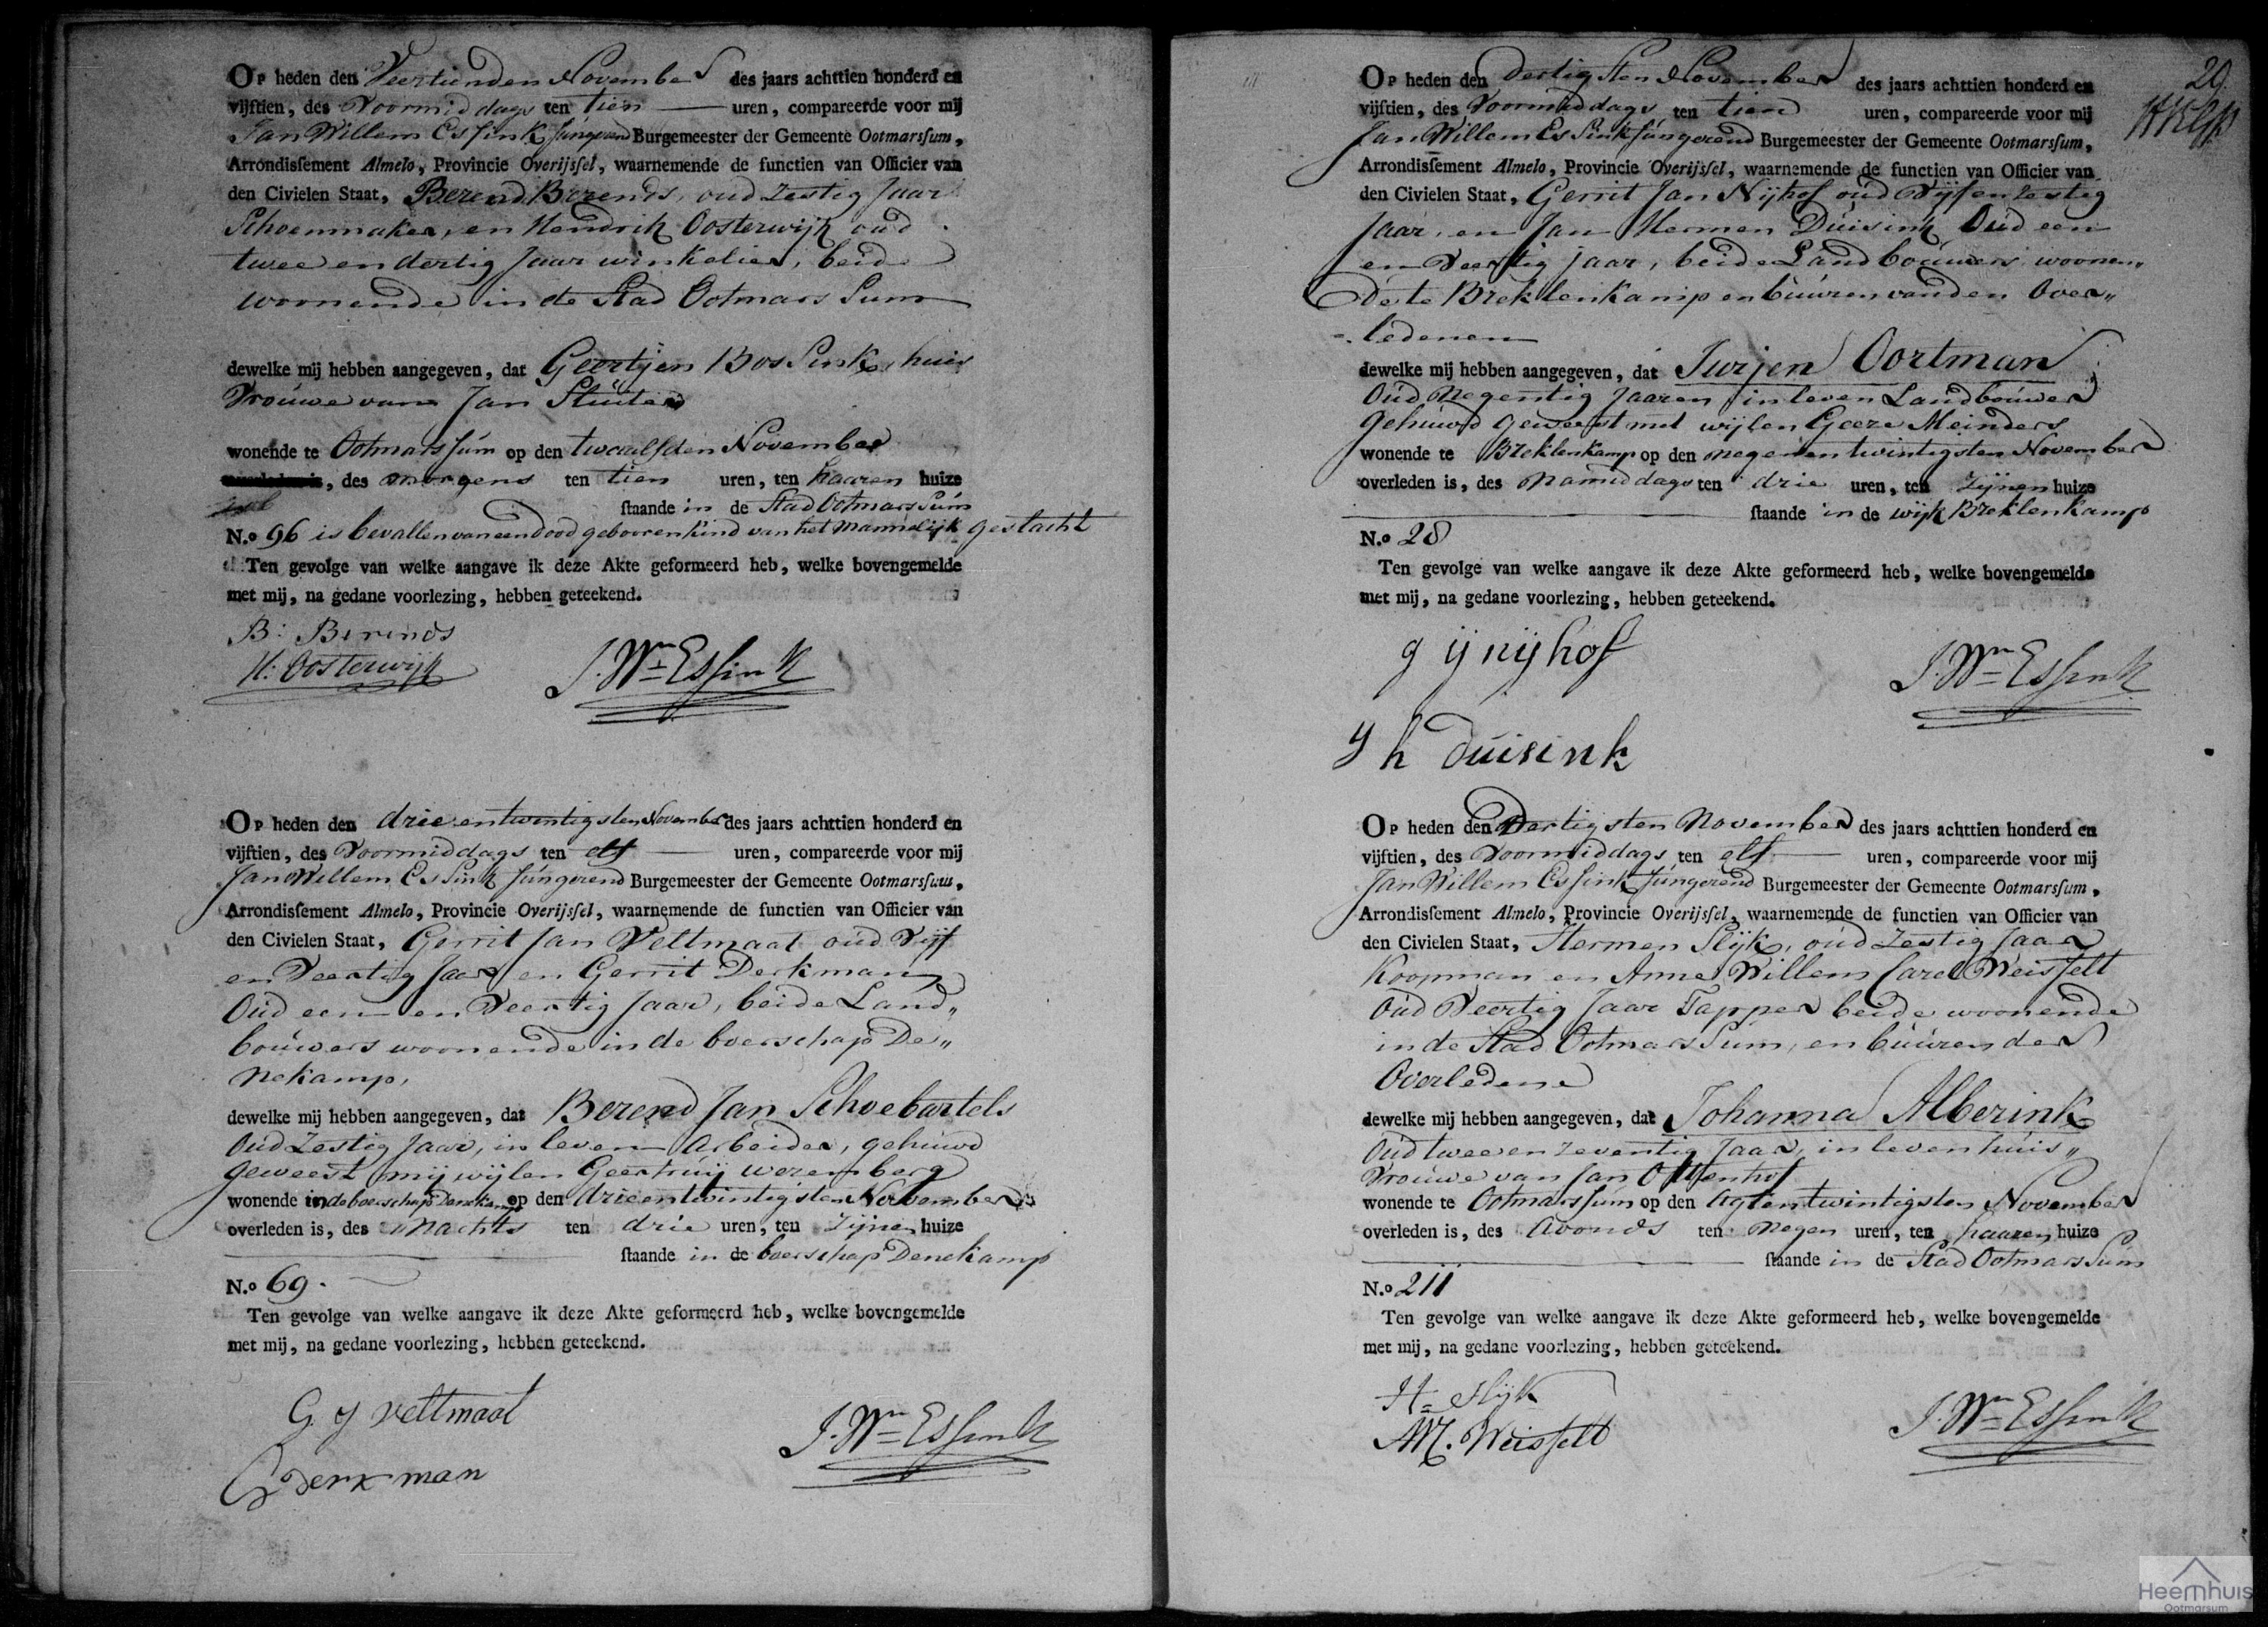 Op heden den Veertienden November des jaars achttien honderd en
vijftien, des Voormiddags ten tien uren, compareerde voor mij
Jan Willem Essink fungerend Burgemeester der Gemeente Ootmarsum,
Arrondissement Almelo, Provincie Overijssel, waarnemende de functien van Officier van
den Civielen Staat, Berend Berends, oud Zestig Jaar
Schoenmaker, en Hendrik Oosterwijk oud
twee en dertig Jaar winkelier, beide
woonende in de Stad Ootmarssum
dewelke mij hebben aangegeven, dat Geertjen Bossink, huis
Vrouwe van Jan Stuiter
wonende te Ootmarssum op den twaalfden November
, des morgens ten tien uren, ten haaren huize
staande in de Stad Ootmarssum
N.o 96 is bevallen van een dood gebooren kind van het mannelijk geslacht
Ten gevolge van welke aangave ik deze Akte geformeerd heb, welke bovengemelde
met mij, na gedane voorlezing, hebben geteekend.
B: Berends
H: Oosterwijk
J. Wm Essink
Op heden den drie en twintigsten November des jaars achttien honderd en
vijftien, des Voormiddags ten elf uren, compareerde voor mij
Jan Willem Essink fungerend Burgemeester der Gemeente Ootmarssum,
Arrondissement Almelo, Provincie Overijssel, waarnemende de functien van Officier van
den Civielen Staat, Gerrit Jan Veltmaat oud Vijf
en Veertig Jaar en Gerrit Derkman
Oud een en Veertig Jaar, beide Land„
bouwers woonende in de boerschap De„
nekamp,
dewelke mij hebben aangegeven, dat Berend Jan Schoebartels
Oud Zestig Jaar, in leven Arbeider, gehuwd
geweest mij wijlen Geertruij weremberg
wonende in de boerschap Denekamp op den drieentwintigsten November
overleden is, des Nachts ten drie uren, ten Zijnen huize
staande in de boerschap Denekamp
N.o 69.
Ten gevolge van welke aangave ik deze Akte geformeerd heb, welke bovengemelde
met mij, na gedane voorlezing, hebben geteekend.
G J Veltmaat
G derkman
J. Wm Essink
29
Op heden den dertigsten November des jaars achttien honderd en
vijftien, des Voormiddags ten tien uren, compareerde voor mij
Jan Willem Essink fungerend Burgemeester der Gemeente Ootmarssum,
Arrondissement Almelo, Provincie Overijssel, waarnemende de functien van Officier van
den Civielen Staat, Gerrit Jan Nijhof oud Vijf en Zestig
Jaar, en Jan Hermen Duisink Oud een
en Veertig jaar, beide Landbouwers woonen„
de te Breklenkamp en buuren van den Over„
ledenen
dewelke mij hebben aangegeven, dat Jurjen Oortman
Oud Negentig Jaaren in leven Landbouwer
Gehuwd geweest met wijlen Geeze Meinders
wonende te Breklenkamp op den negenentwintigsten November
overleden is, des Namiddags ten drie uren, ten Zijnen huize
staande in de wijk Breklenkamp
N.o 28
Ten gevolge van welke aangave ik deze Akte geformeerd heb, welke bovengemelde
met mij, na gedane voorlezing, hebben geteekend.
g ij nijhof
J. Wm Essink
J h duisink
Op heden den Dertigsten November des jaars achttien honderd en
vijftien, des Voormiddags ten elf uren, compareerde voor mij
Jan Willem Essink fungerend Burgemeester der Gemeente Ootmarssum,
Arrondissement Almelo, Provincie Overijssel, waarnemende de functien van Officier van
den Civielen Staat, Hermen Slijk, oud Zestig Jaar
Koopman en Anne Willem Carel Weisfelt
Oud Veertig Jaar Tapper beide woonende
in de Stad Ootmarssum, en buuren der
Overledene
dewelke mij hebben aangegeven, dat Johanna Alberink
Oud twee en Zeventig Jaar, in leven huis„
Vrouwe van Jan Ottenhof
wonende te Ootmarssum op den Agtentwintigsten November
overleden is, des Avonds ten negen uren, ten haaren huize
staande in de Stad Ootmarssum
N.o 211
Ten gevolge van welke aangave ik deze Akte geformeerd heb, welke bovengemelde
met mij, na gedane voorlezing, hebben geteekend.
H= Slijk
AW. Weisfelt
J. Wm Essink
Heemhuis
Ootmarsum